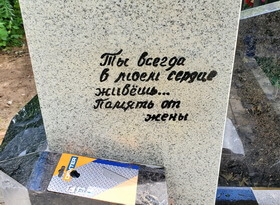 Ты всегда
в моем сердце
живёшь...
Память от
жены